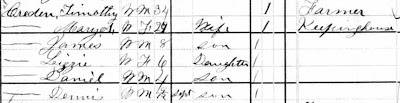 Creden, Timothy W M 34 1 Farmer
Margret W F 29 Wife 1 Keeping house
James W M 8 Son 1
Lizzie W F 6 Daughter 1
Daniel W M 4 Son 1
Dennis W M Sept Son 1